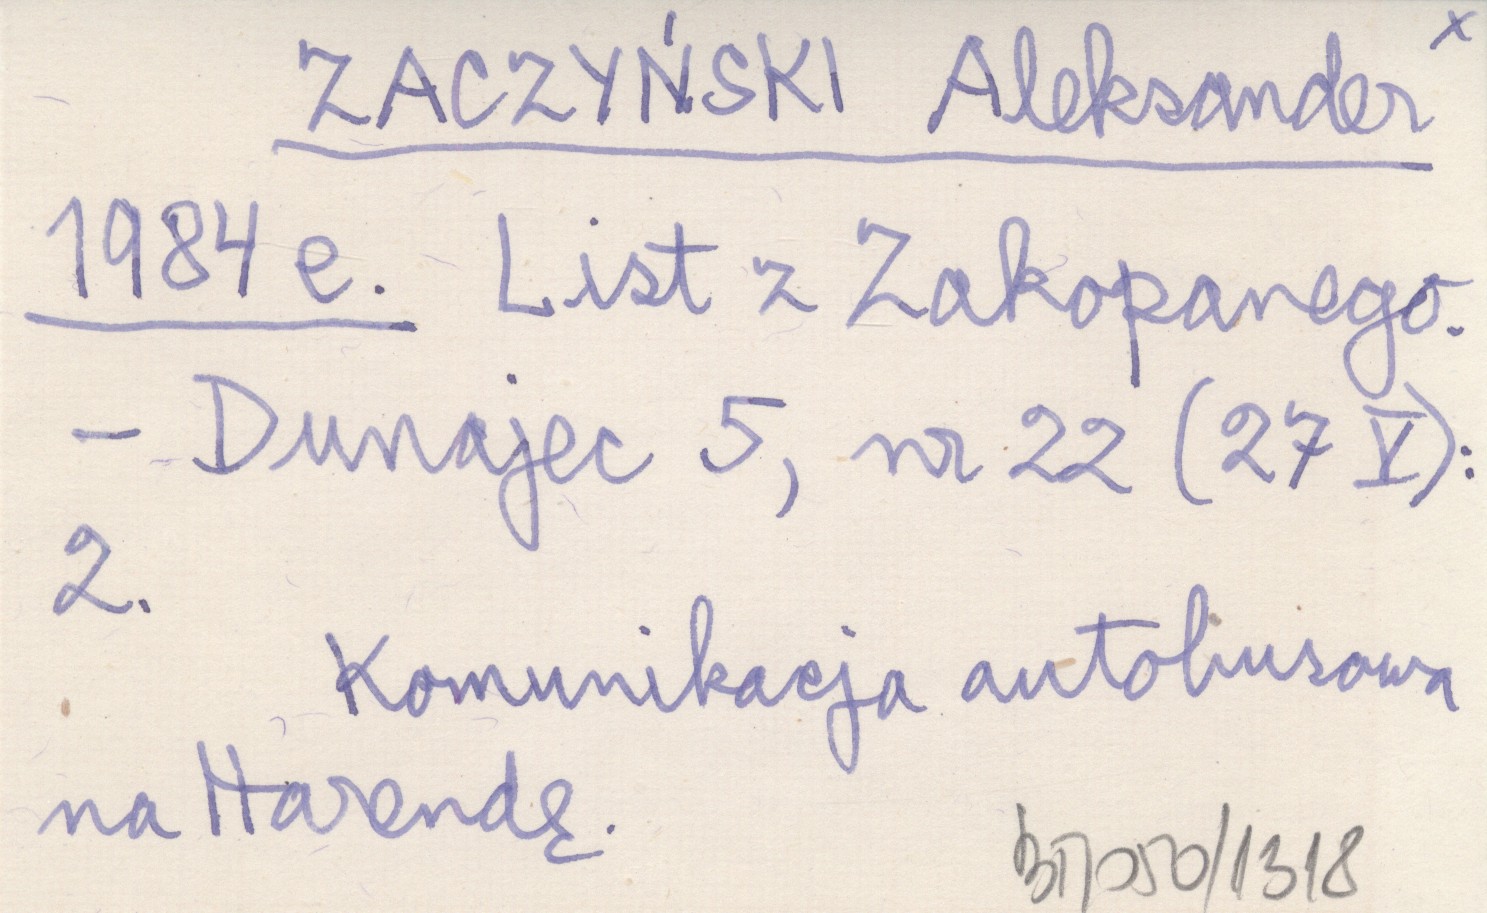 ZACZYŃSKI Aleksander x
1984 e. List z Zakopanego.
– Dunajec 5, nr 22 (27 V):
2.
Komunikacja autobusowa
na Harendę.
/1318